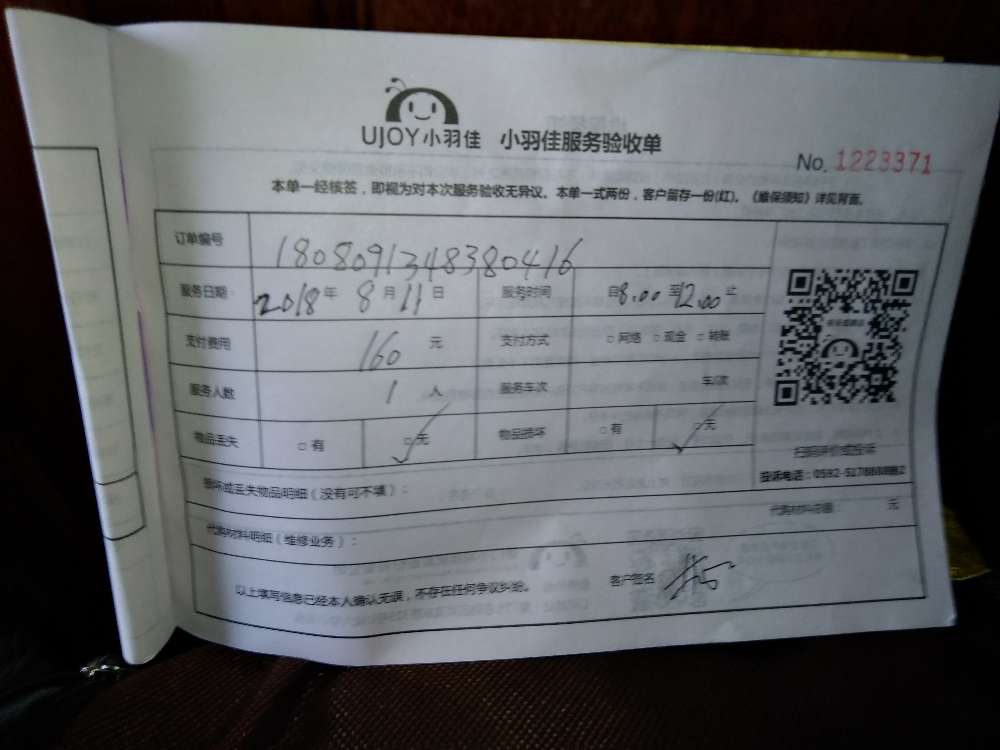 UJOY小羽佳 小羽佳服务验收单
No. 1223371
本单一经核签，即视为对本次服务验收无异议。本单一式两份，客户留存一份(红)。《维保须知》详见背面。
订单编号 1808091348380416
服务日期 2018年 8月11日 服务时间 自8.00至12.00止
支付费用 160 元 支付方式 □网络 □现金 □转账
服务人数 1 人 服务车次 车/次
物品丢失 □有 □无 物品损坏 □有 □无
扫码评价或投诉
投诉电话：0592-5178888
损坏或丢失物品明细（没有可不填）：
代购材料明细（维修业务）： 代购材料总额： 元
以上填写信息已经本人确认无误，不存在任何争议纠纷。 客户签名